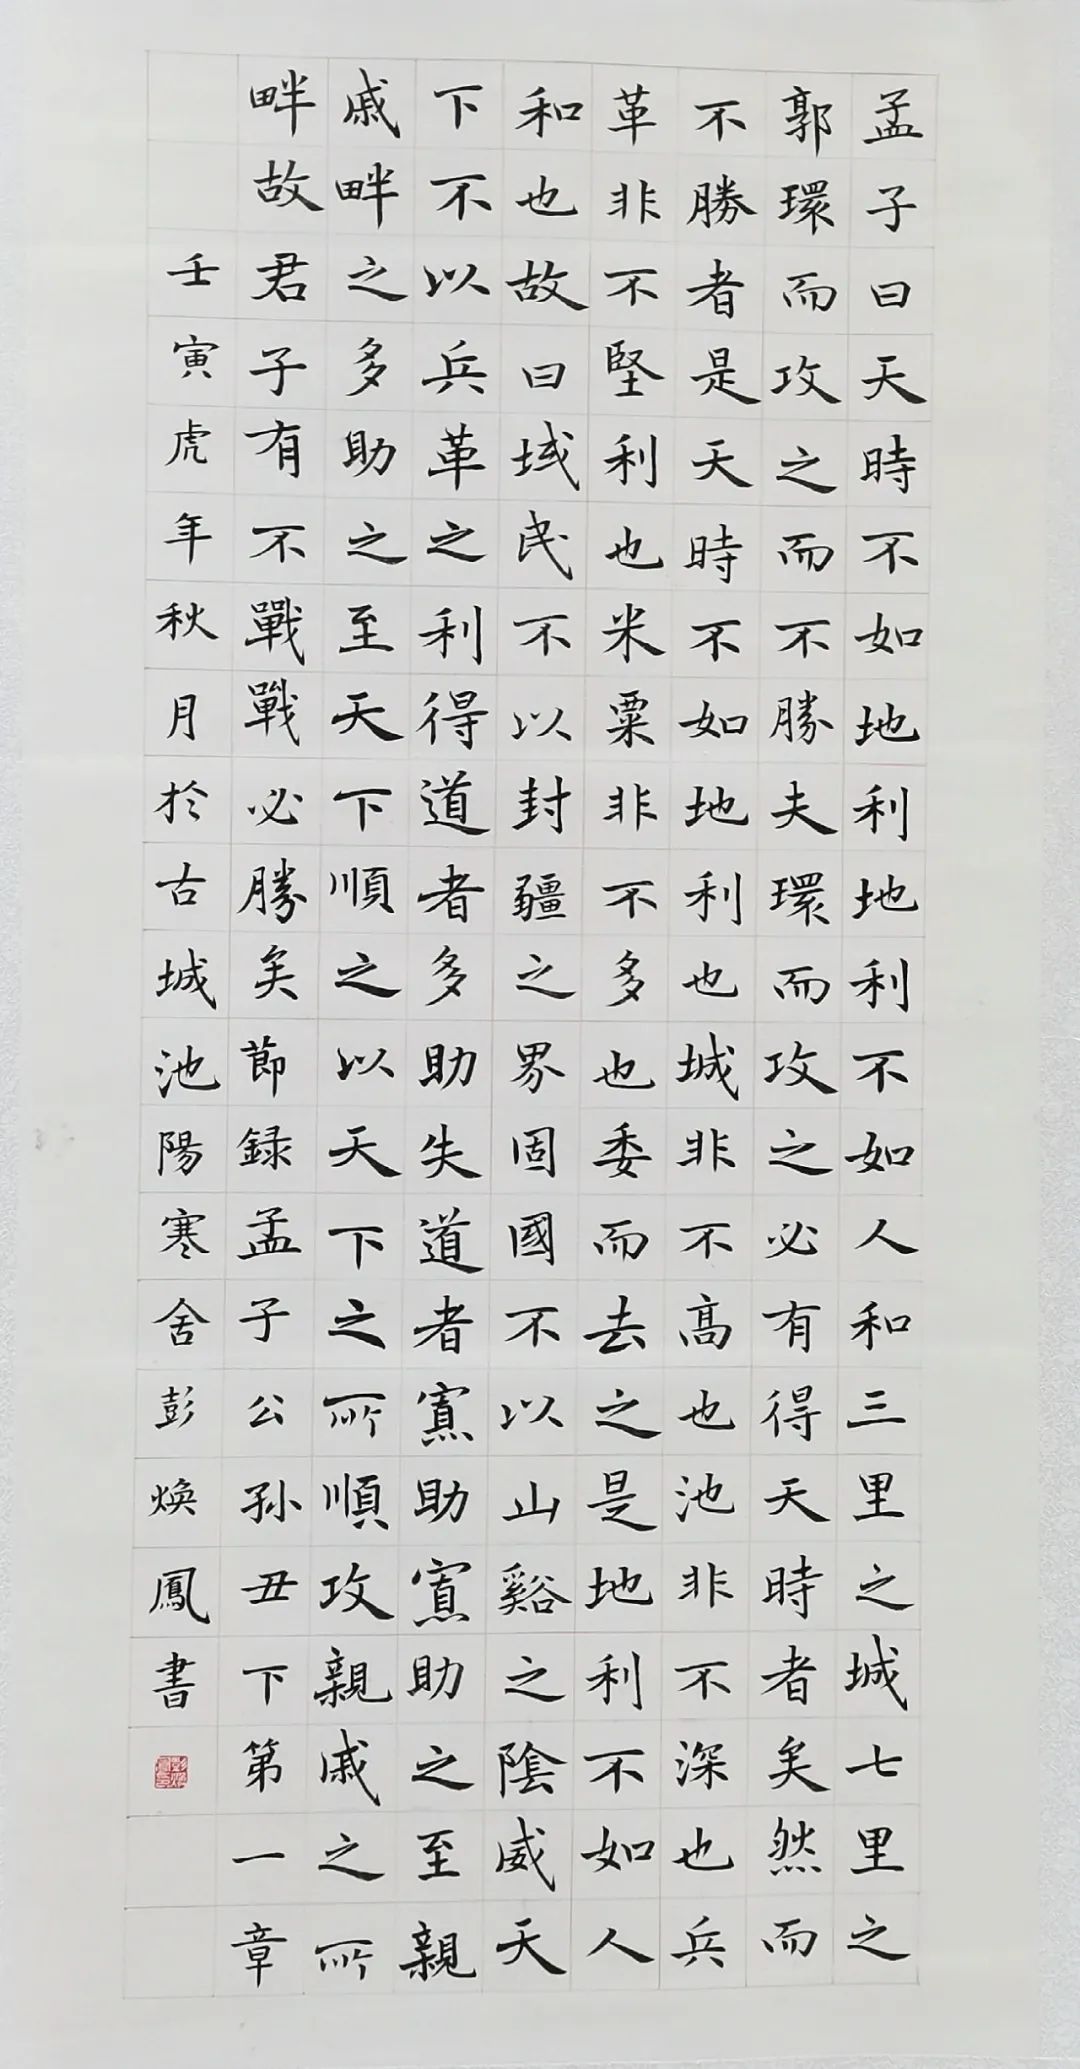 孟子曰天時不如地利地利不如人和三里之城七里之
郭環而攻之而不勝夫環而攻之必有得天時者矣然而
不勝者是天時不如地利也城非不高也池非不深也兵
革非不堅利也米粟非不多也委而去之是地利不如人
和也故曰域民不以封疆之界固國不以山谿之陰威天
下不以兵革之利得道者多助失道者寡助寡助之至親
戚畔之多助之至天下順之以天下之所順攻親戚之所
畔故君子有不戰戰必勝矣節録孟子公孙丑下第一章
壬寅虎年秋月於古城池陽寒舍彭焕鳳書